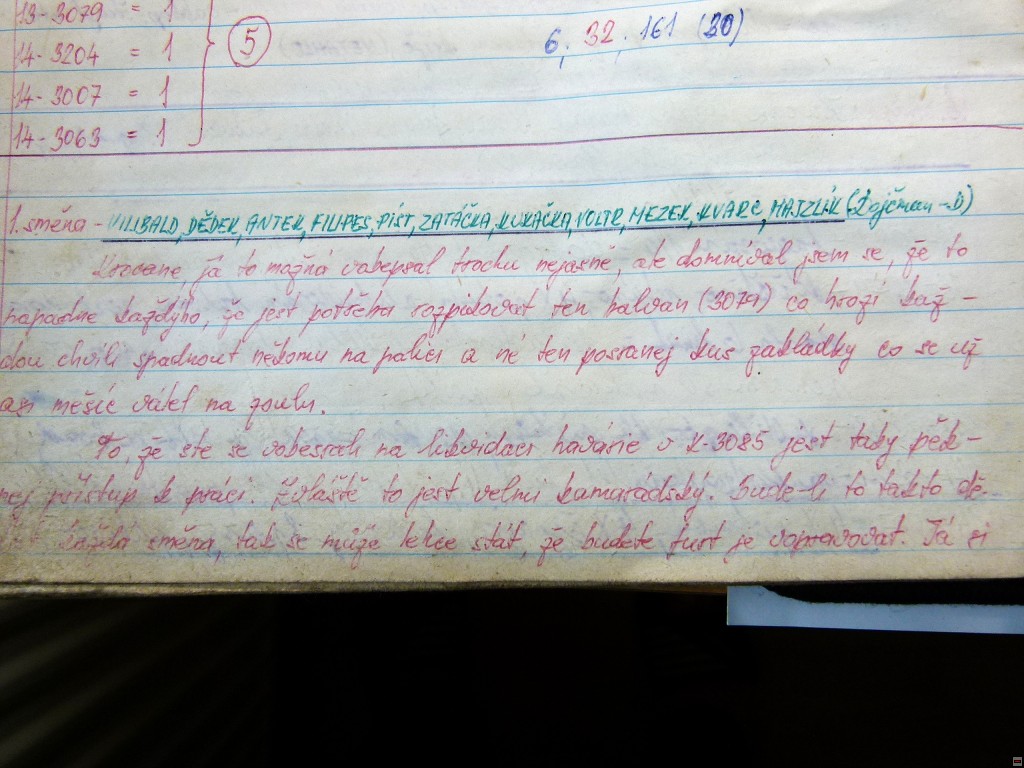 13-3079 = 1
14-3204 = 1 5 6, 32, 161 (30)
14-3007 = 1
14-3063 = 1
1. směna - VILIBALD, DĚDEK, ANTEK, FILIPES, PÍST, ZATÁČKA, KUKAČKA, VOLTR, MEZEK, KVARC, MAJZLÍK (Dojčman-D)
já to možná vobepsal trochu nejasně, ale domníval jsem se, že to
napadne každýho, že jest potřeba rozpikovat ten halvan (3079) co hrozí kaž-
dou chvíli spadnout někomu na palici a né ten posranej kus zakládky co se už
asi měsíc válel na
To, že ste se vobesrali na likvidaci havárie v K-3085 jest taky pěk-
nej přístup k práci. Zvláště to jest velmi kamarádský. Bude-li to takto dě-
každá směna, tak se může lehce stát, že budete furt je vopravovat. Já si